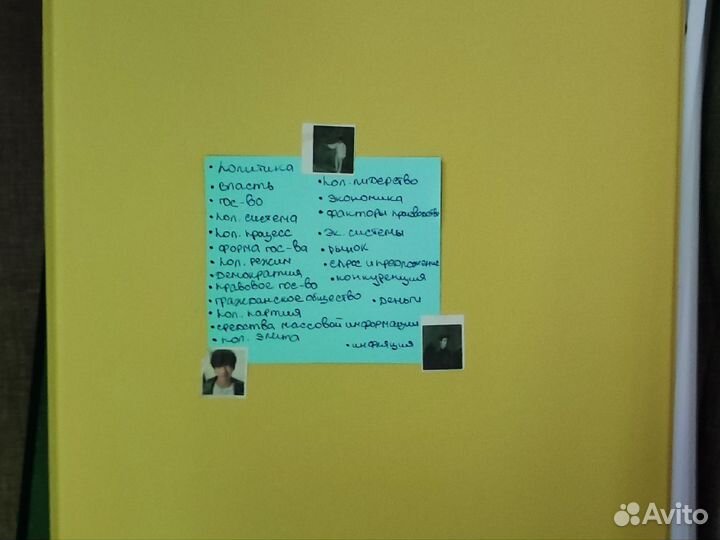 • политика
• власть
• гос-во
• пол. система
• пол. процесс
• форма гос-ва
• пол. режим
• демократия
• правовое гос-во
• гражданское общество
• пол. партия
• средства массовой информации
• пол. элита
• пол. лидерство
• экономика
• факторы производства
• эк. системы
• рынок
• спрос и предложение
• конкуренция
• деньги
• инфляция
Avito